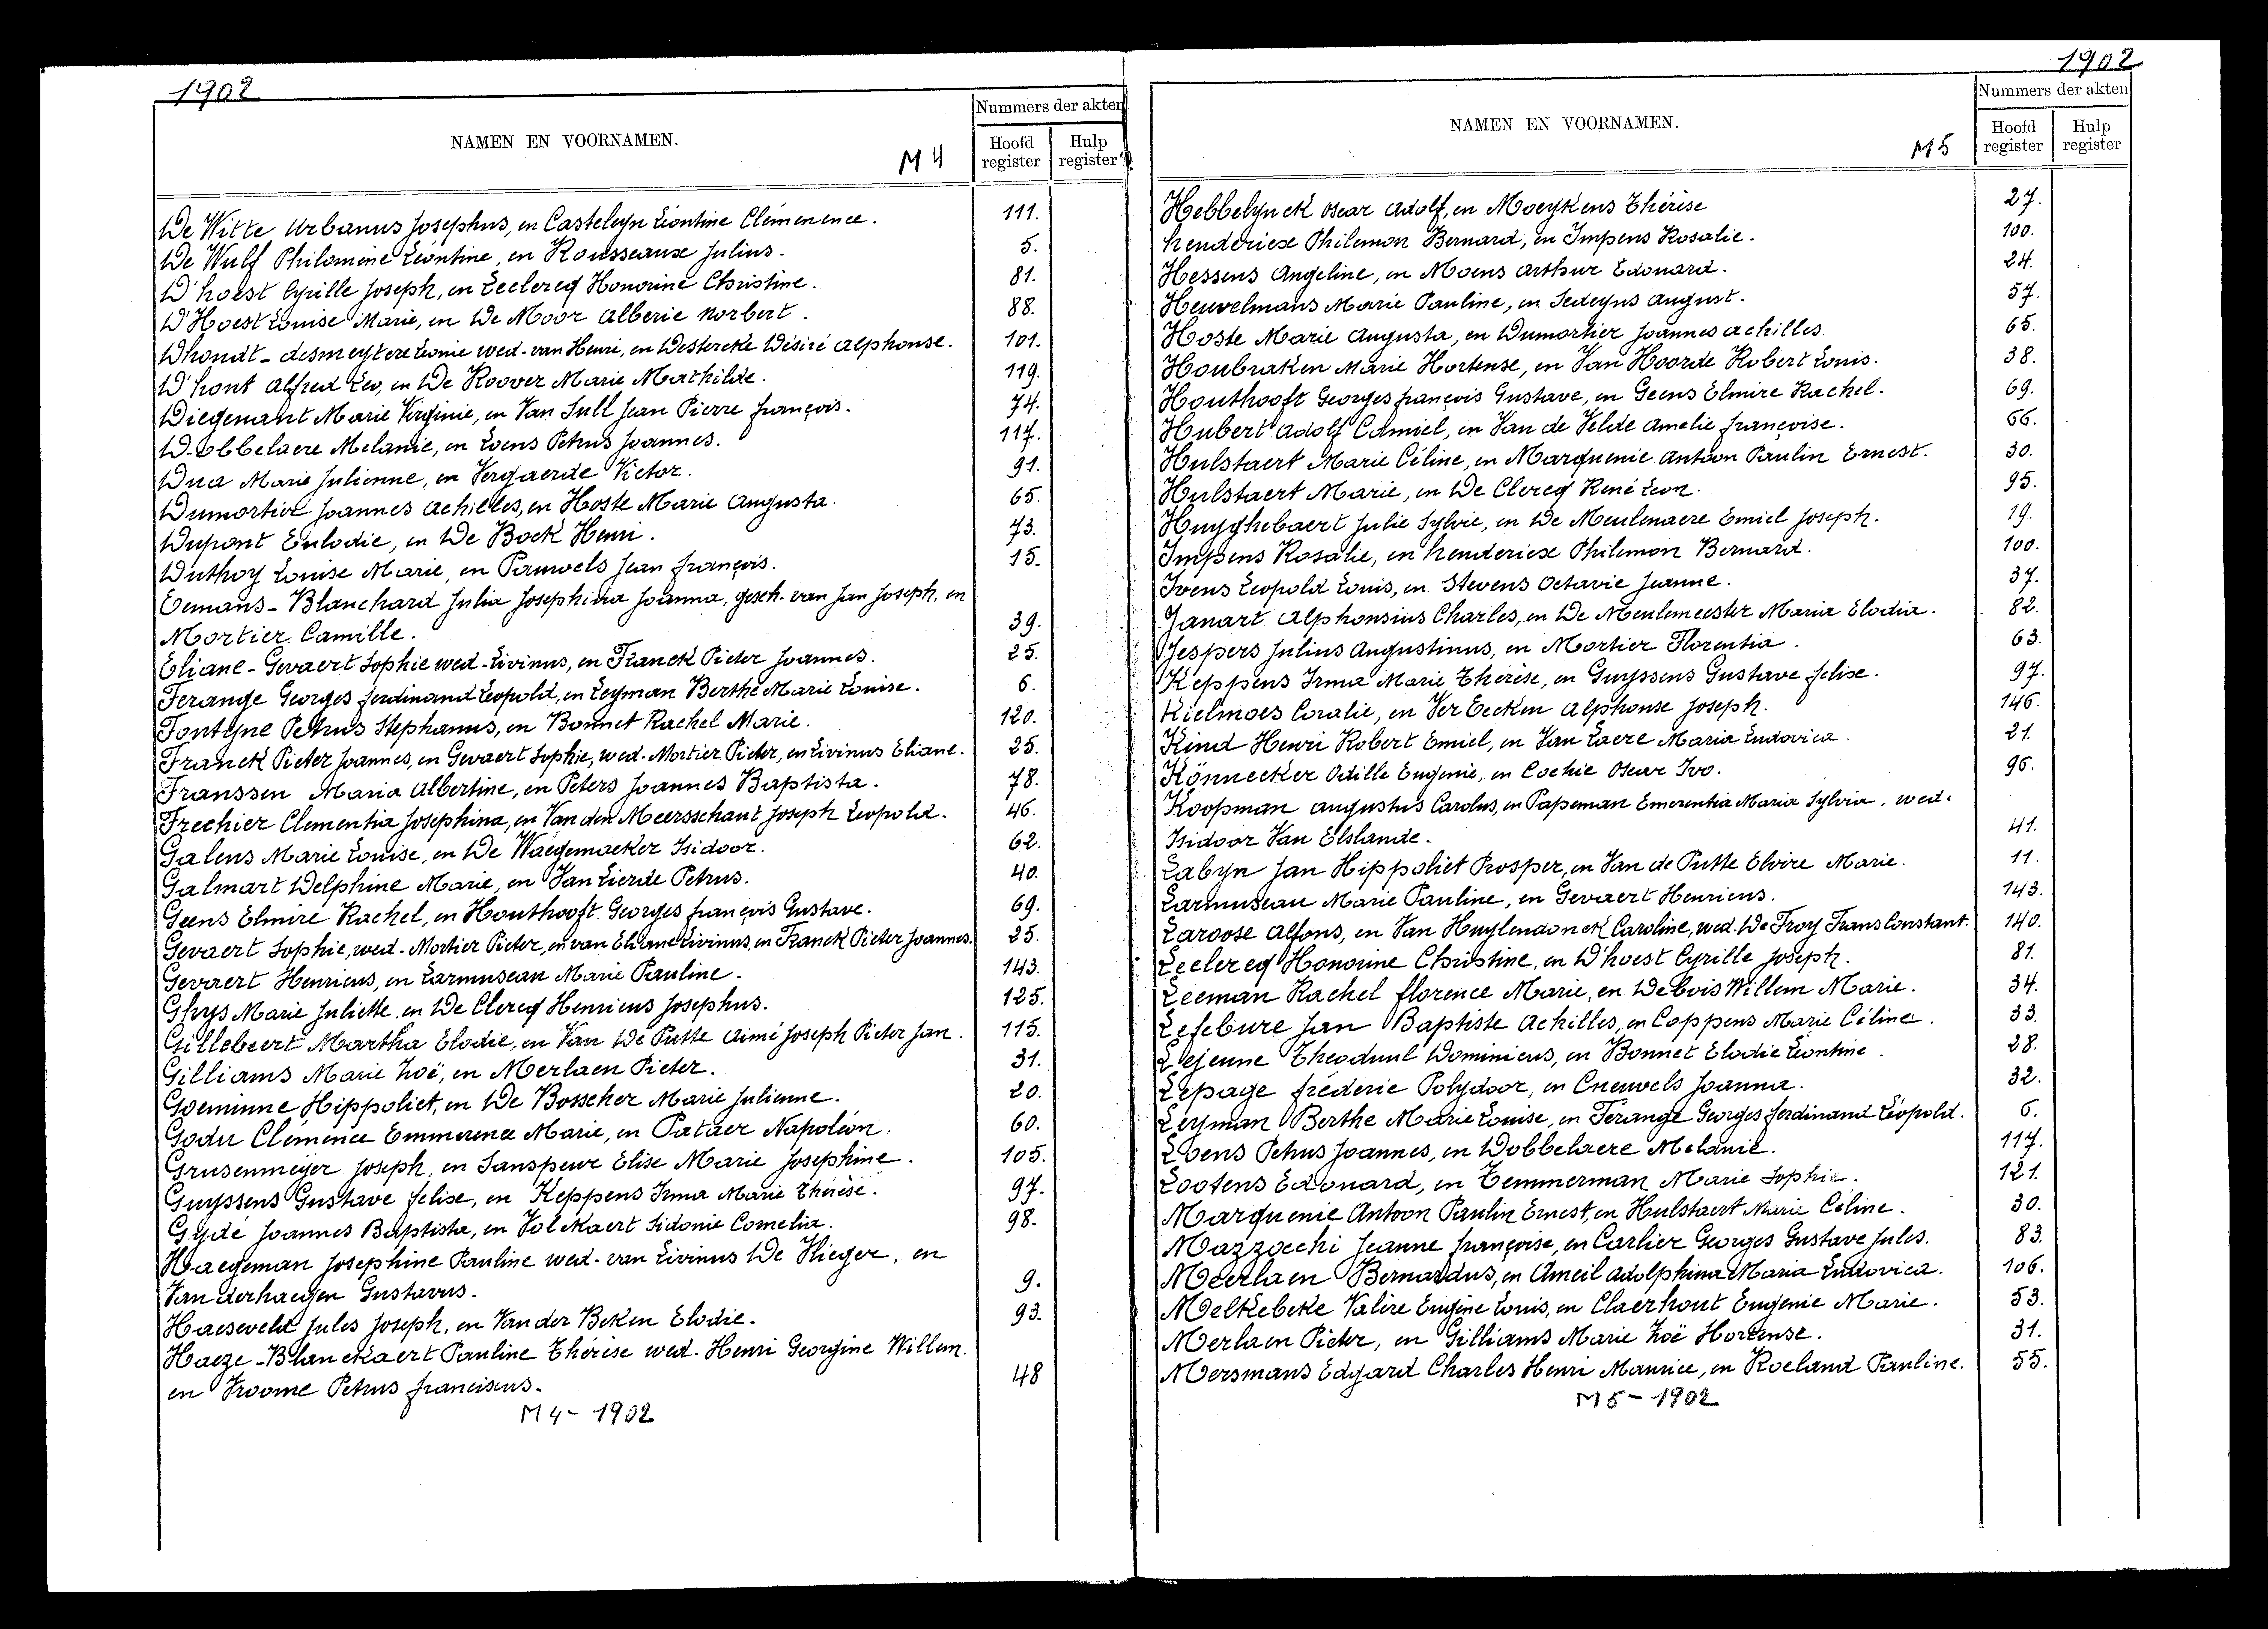 1902
NAMEN EN VOORNAMEN.
M4
Nummers der akten
Hoofd register
Hulp register
De Witte Urbanus Josephus, en Casteleyn Léontine Clémenence. 111.
De Wulf Philomène Léontine, en Rousseaux Julius. 5.
D'hoest Cyrille Joseph, en Leclercq Honorine Christine. 81.
D'Hoest Louise Marie, en De Moor Alberic Norbert. 88.
Dhondt - desmeytere Léonie wed. van Henri, en Destercke Désiré Alphonse. 101.
D'hont Alfred Leo, en De Roover Marie Mathilde. 119.
Diegenant Marie Virginie, en Van Sull Jean Pierre françois. 74.
Dobbelaere Melanie, en Loens Petrus Joannes. 117.
Dua Marie Julienne, en Vergaerde Victor. 91.
Dumortier Joannes Achilles, en Hoste Marie Augusta. 65.
Dupont Eulodie, en De Bock Henri. 73.
Duthoy Louise Marie, en Pauwels Jean françois. 15.
Eemans - Blanchard Julia Josephina Joanna, gesch. van Jan Joseph, en
Mortier Camille. 39.
Eliane - Gevaert Sophie wed. Livinus, en Franck Pieter Joannes. 25.
Ferange Georges ferdinand Leopold, en Leyman Berthe Marie Louise. 6.
Fontyne Petrus Stephanus, en Bonnet Rachel Marie. 120.
Franck Pieter Joannes, en Gevaert Sophie, wed. Mortier Pieter, en Livinus Eliane. 25.
Franssen Maria Albertine, en Peters Joannes Baptista. 78.
Frechier Clementia Josephina, en Van den Meersschaut Joseph Leopold. 46.
Galens Marie Louise, en De Waegemaeker Isidoor. 62.
Galmart Delphine Marie, en Van Lierde Petrus. 40.
Geens Elmire Rachel, en Houthooft Georges françois Gustave. 69.
Gevaert Sophie, wed. Mortier Pieter, en van Eliane Livinus, en Franck Pieter Joannes. 25.
Gevaert Henricus, en Larmuseau Marie Pauline. 143.
Ghys Marie Juliette, en De Clercq Henricus Josephus. 125.
Gillebeert Martha Elodie, en Van De Putte Aimé Joseph Pieter Jan. 115.
Gilliams Marie Zoë, en Merlaen Pieter. 31.
Goeminne Hippoliet, en De Bosscher Marie Julienne. 20.
Godu Clémence Emmerence Marie, en Pataer Napoléon. 60.
Grusenmeyer Joseph, en Sanspeur Elise Marie Josephine. 105.
Guyssens Gustave félise, en Keppens Irma Marie Thérèse. 97.
Gydé Joannes Baptista, en Volckaert Sidonie Cornelia. 98.
Haegeman Josephine Pauline wed. van Livinus De Vlieger, en
Van derhaegen Gustavus. 9.
Haeseveld Jules Joseph, en Van der Beken Elodie. 93.
Haeze - Blanckaert Pauline Thérèse wed. Henri Georgine Willem.
en Vroome Petrus franciscus. 48
M4 - 1902
1902
NAMEN EN VOORNAMEN.
M5
Nummers der akten
Hoofd register
Hulp register
Hebbelynck Oscar Adolf, en Moeykens Thérèse 27.
henderiese Philemon Bernard, en Impens Rosalie. 100.
Hessens Angeline, en Moens Arthur Edouard. 24.
Heuvelmans Marie Pauline, en Sedeyns August. 57.
Hoste Marie Augusta, en Dumortier Joannes Achilles. 65.
Houbraken Marie Hortense, en Van Hoorde Robert Louis. 38.
Houthooft Georges françois Gustave, en Geens Elmire Rachel. 69.
Hubert Adolf Camiel, en Van de Velde Amelie françoise. 66.
Hulstaert Marie Céline, en Marquenie Antoon Paulin Ernest. 30.
Hulstaert Marie, en De Clercq René Leon. 95.
Huyghebaert Julie Sylvie, en De Meulenaere Emiel Joseph. 19.
Impens Rosalie, en henderiese Philemon Bernard. 100.
Ivens Leopold Louis, en Stevens Octavie Jeanne. 37.
Janart Alphonsius Charles, en De Meulemeester Maria Elodia. 82.
Jespers Julius Augustinus, en Mortier Florentia. 63.
Keppens Irma Marie Thérèse, en Guyssens Gustave félise. 97.
Kielmoes Coralie, en Ver Eecken Alphonse Joseph. 146.
Kind Henri Robert Emiel, en Van Laere Maria Ludovica. 21.
Könnecker Odille Eugenie, en Cochie Oscar Ivo. 96.
Koopman Augustus Carolus, en Papeman Emerentia Maria Sylvia, wed.
Isidoor Van Elslande. 41.
Labyn Jan Hippoliet Prosper, en Van de Putte Elvire Marie. 11.
Larmuseau Marie Pauline, en Gevaert Henricus. 143.
Laroose Alfons, en Van Huylendonck Caroline, wed. De Troy Frans Constant. 140.
Leclercq Honorine Christine, en D'hoest Cyrille Joseph. 81.
Leeman Rachel florence Marie, en Debois Willem Marie. 34.
Lefebure Jan Baptiste Achilles, en Coppens Marie Céline. 33.
Lejeune Theoduul Dominicus, en Bonnet Elodie Léontine. 28.
Lepage fréderic Polydoor, en Cneuvels Joanna. 32.
Leyman Berthe Marie Louise, en Férange Georges ferdinand Léopold. 6.
Loens Petrus Joannes, en Dobbelaere Melanie. 117.
Lootens Edouard, en Temmerman Marie Sophie. 121.
Marquenie Antoon Paulin Ernest, en Hulstaert Marie Céline. 30.
Mazzocchi Jeanne françoise, en Carlier Georges Gustave Jules. 83.
Meerlaen Bernardus, en Ameil Adolphina Maria Ludovica. 106.
Melkebeke Valère Eugène Louis, en Claerhout Eugenie Marie. 53.
Merlaen Pieter, en Gilliams Marie Zoë Hortense. 31.
Mersmans Edgard Charles Henri Maurice, en Roeland Pauline. 55.
M5 - 1902